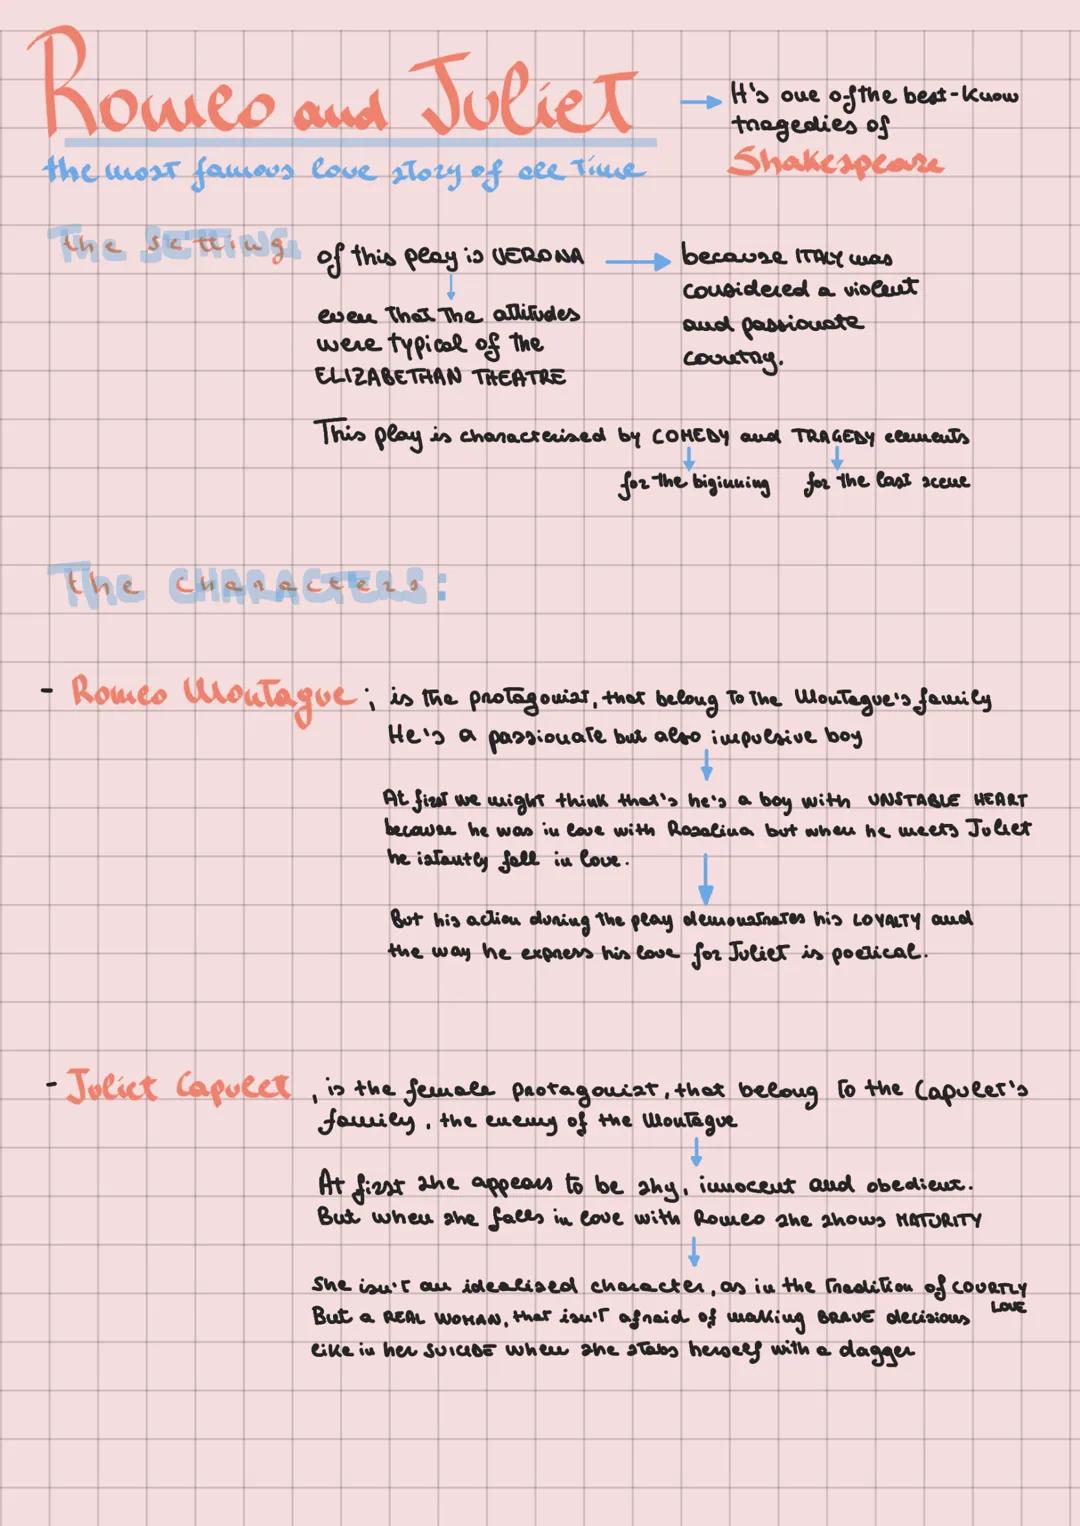 Romeo and Juliet
the most famous love story of all time
→ It's one of the best-know
tragedies of
Shakespeare
The SETTING:
of this play is VERONA → because ITALY was
considered a violent
and passionate
country.
↓
even that the attitudes
were typical of the
ELIZABETHAN THEATRE
This play is characterised by COMEDY and TRAGEDY elements
↓ ↓
for the biginning for the last scene
The CHARACTERS:
- Romeo Montague; is the protagonist, that belong to the Montague's family
He's a passionate but also impulsive boy
↓
At first we might think that's he's a boy with UNSTABLE HEART
because he was in love with Rosalina but when he meets Juliet
he istantly fell in love.
↓
But his action during the play demonstrates his LOYALTY and
the way he express his love for Juliet is poetical.
- Juliet Capulet, is the female protagonist, that belong to the Capulet's
family, the enemy of the Montague
↓
At first she appears to be shy, innocent and obedient.
But when she falls in love with Romeo she shows MATURITY
↓
She isn't an idealised character, as in the tradition of COURTLY
LOVE
But a REAL WOMAN, that isn't afraid of making BRAVE decisions
like in her SUICIDE when she stabs herself with a dagger